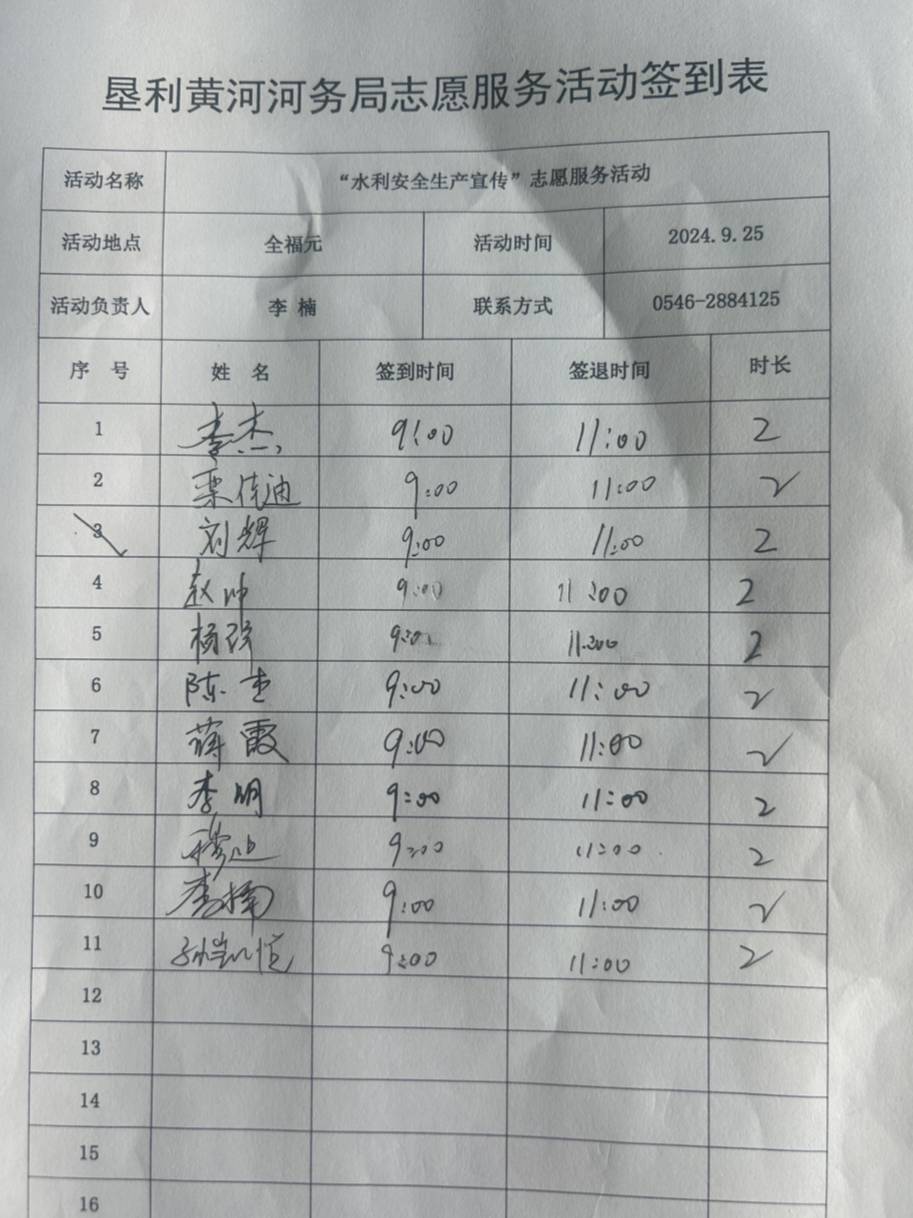 垦利黄河河务局志愿服务活动签到表
活动名称 “水利安全生产宣传”志愿服务活动
活动地点 全福元 活动时间 2024.9.25
活动负责人 李 楠 联系方式 0546-2884125
序 号 姓 名 签到时间 签退时间 时长
1 李杰 9:00 11:00 2
2 9:00 11:00 2
3 刘辉 9:00 11:00 2
4 赵坤 9:00 11:00 2
5 杨强 9:00 11:00 2
6 陈 9:00 11:00 2
7 蒋霞 9:00 11:00 2
8 李明 9:00 11:00 2
9 9:00 11:00 2
10 李楠 9:00 11:00 2
11 孙凯恒 9:00 11:00 2
12
13
14
15
16